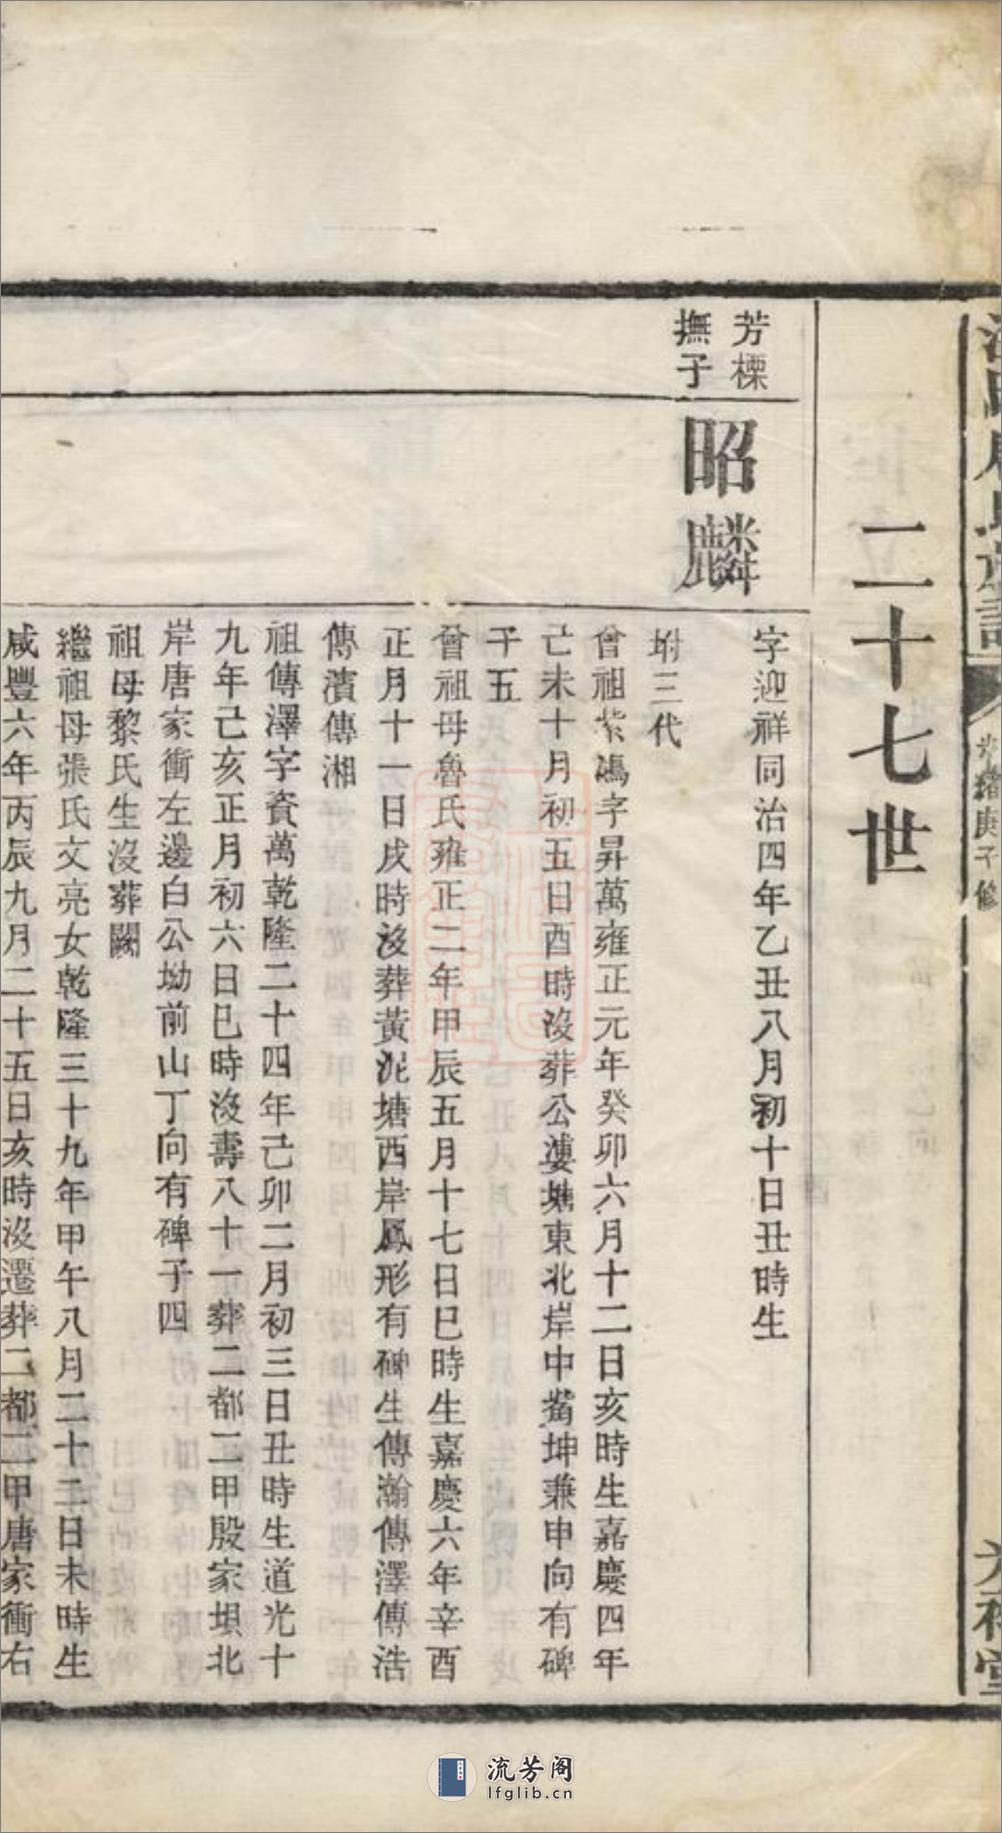 二十七世
芳標
撫子
昭麟
字迎祥同治四年乙丑八月初十日丑時生
坿三代
曾祖紫馮字昇萬雍正元年癸卯六月十二日亥時生嘉慶四年
己未十月初五日酉時沒葬公塘東北岸中坤兼申向有碑
子五
曾祖母魯氏雍正二年甲辰五月十七日巳時生嘉慶六年辛酉
正月十一日戌時沒葬黃泥塘西岸鳳形有碑生傳瀚傳澤傳浩
傳濱傳湘
祖傳澤字資萬乾隆二十四年己卯二月初三日丑時生道光十
九年己亥正月初六日巳時沒壽八十一葬二都二甲殷家垻北
岸唐家衝左邊白公坳前山丁向有碑子四
祖母黎氏生沒葬闕
繼祖母張氏文亮女乾隆三十九年甲午八月二十二日未時生
咸豐六年丙辰九月二十五日亥時沒遷葬二都二甲唐家衝右
光緒庚子修
流芳阁
lfglib.cn